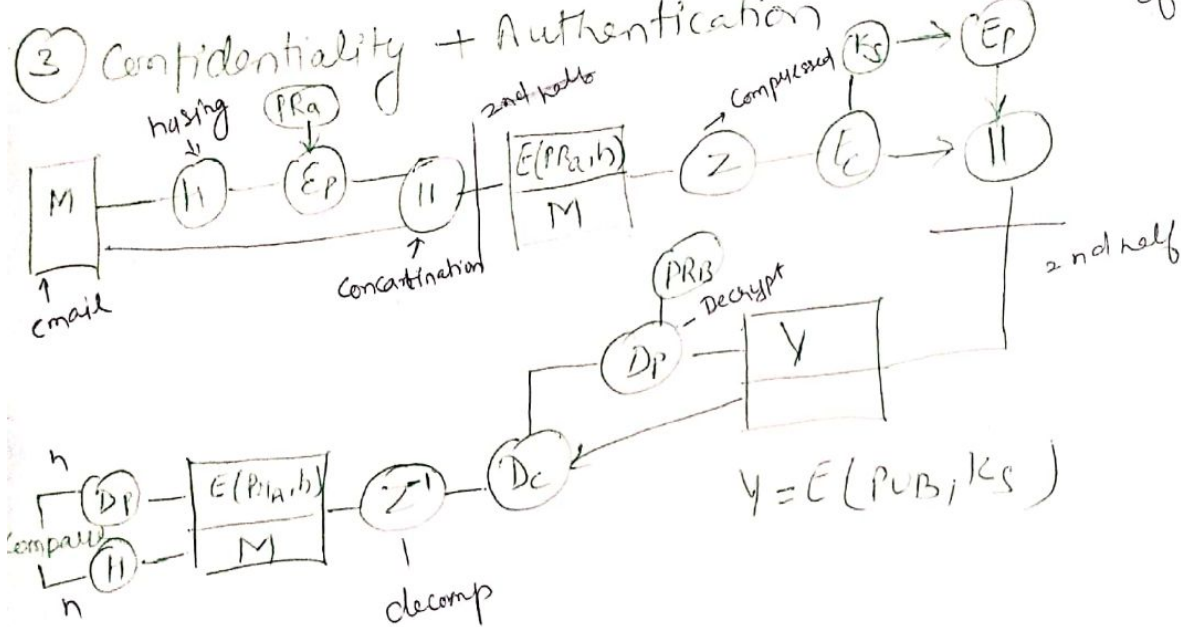 ③ Confidentiality + Authentication
hasing
PRa
2nd half
compressed
Ks
Ep
M
H
Ep
||
E(PRa,h)
M
Z
Ec
||
email
Concartination
2nd half
PRB
Decrypt
Dp
Y
h
Dp
E(PRA,h)
M
Z⁻¹
Dc
Y = E(PUB, Ks)
Compare
H
h
decomp